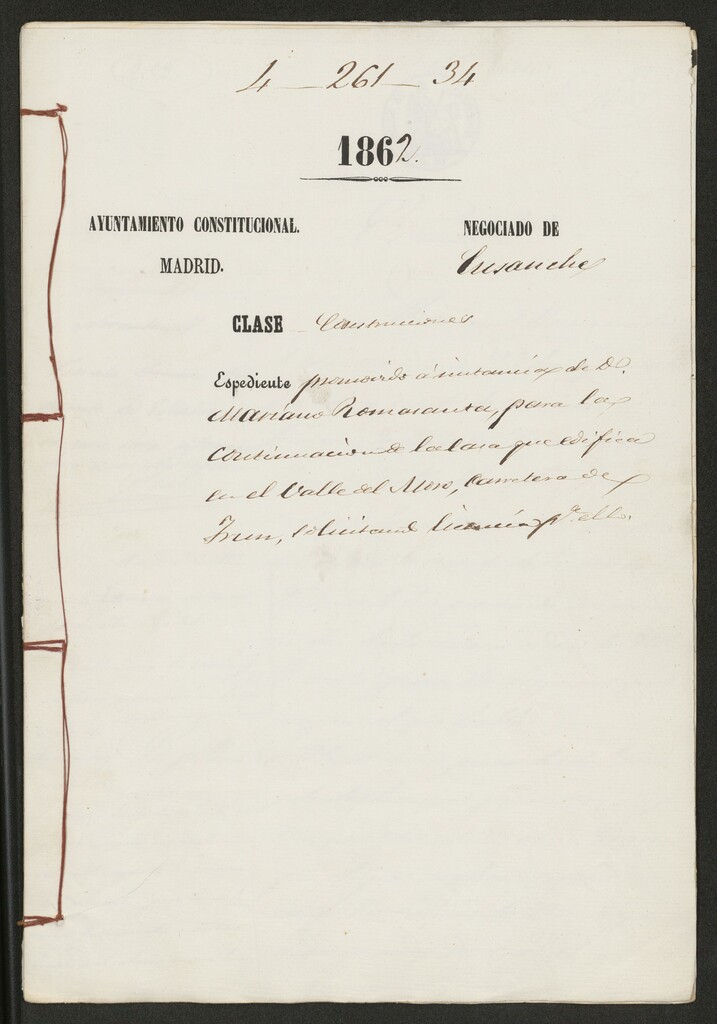 4 — 261 — 34
1862.
AYUNTAMIENTO CONSTITUCIONAL.
MADRID.
NEGOCIADO DE
Ensanche
CLASE Construcciones
Espediente promovido á instancia de D.
Mariano Romaranta, para la
continuacion de la casa que edifica
en el Valle del Moro, Carretera de
Irun, solicitando licencia pª. ello.